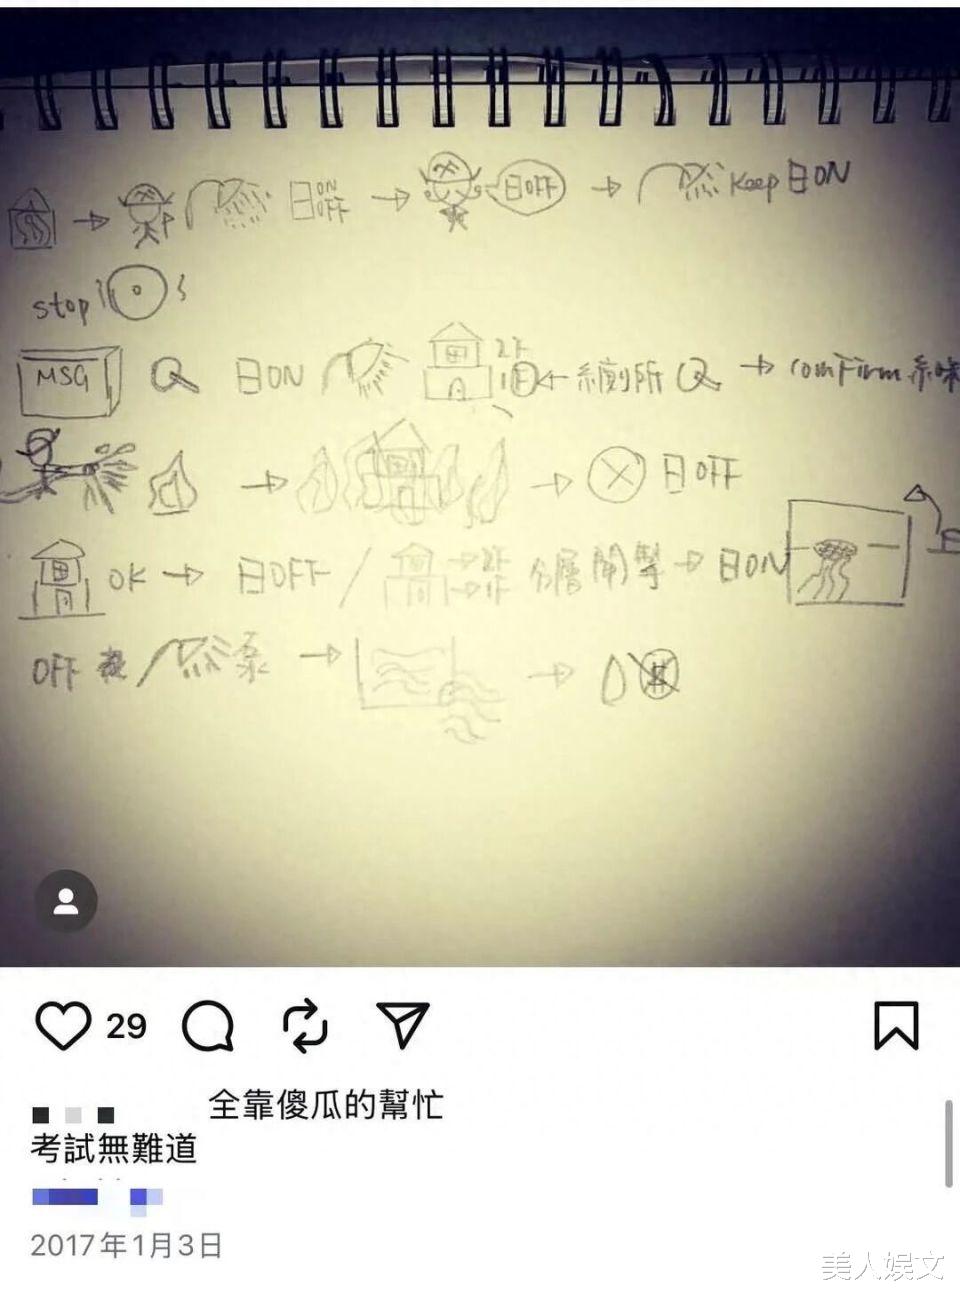 日 ON OFF 日OFF Keep 日ON
stop
MSG 日ON 2F 1F 廁所 comfirm
日OFF
OK 日OFF / 2F 1F 分層開掣 日ON
OFF / 泵
29
全靠傻瓜的幫忙
考試無難道
2017年1月3日
美人娱文